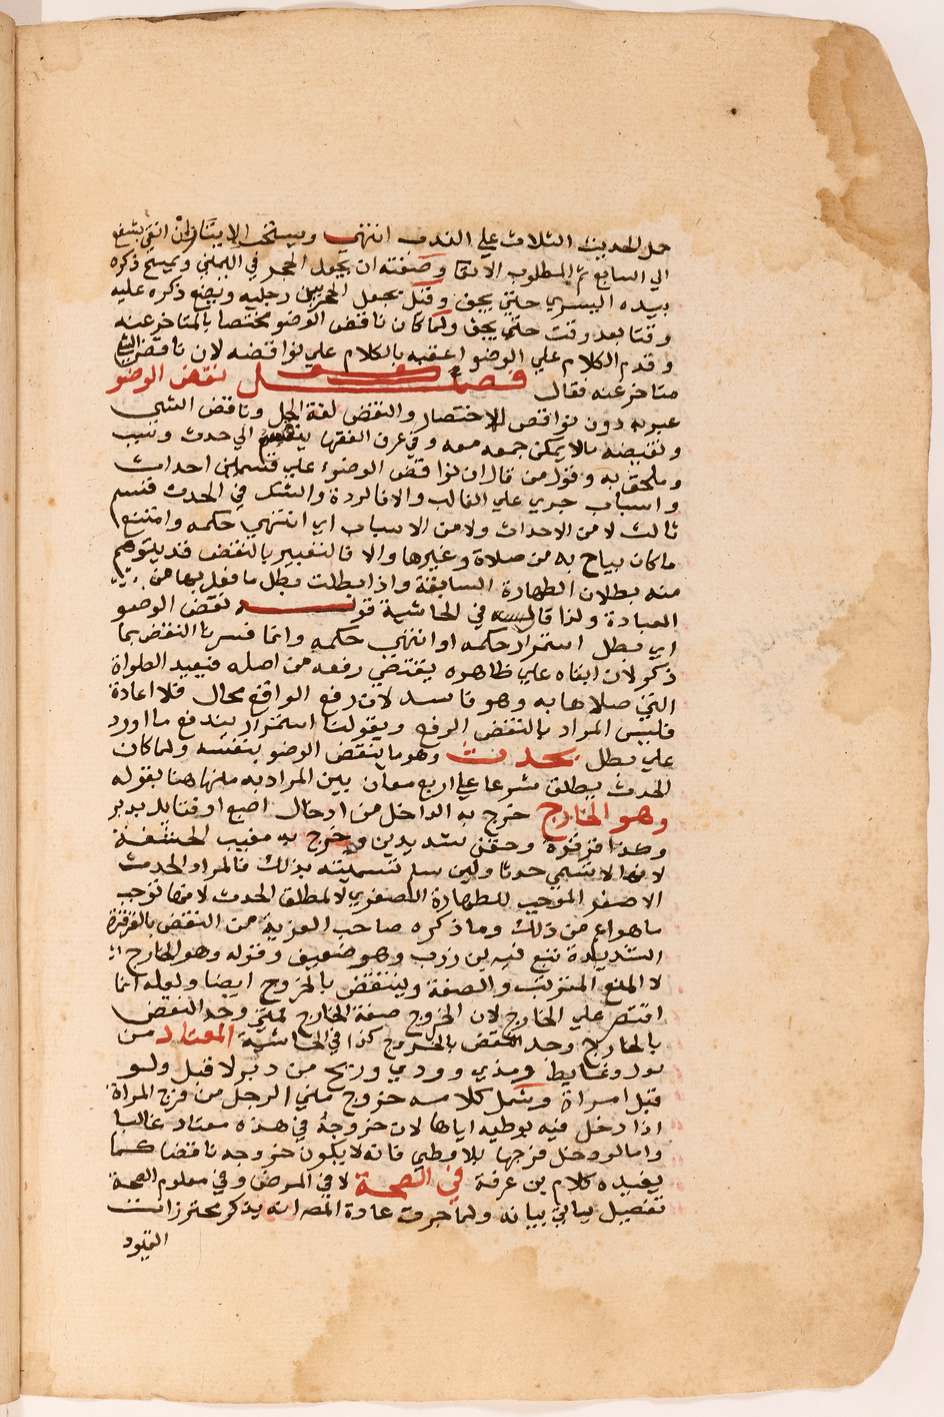 حمل الحديث الثلاث علي الندب انتهي ويستحب الايتار وان انقي بشفع
الي السابع ثم المطلوب الانقا وصفته ان يجعل الحجر في اليمني ويمسح ذكره
بيده اليسري حتي يجف وقيل يجعل الحجر بين رجليه ويضع ذكره عليه
وقتا بعد وقت حتي يجف ولما كان ناقض الوضو مختصا بالمتاخر عنه
وقدم الكلام علي الوضو اعقبه بالكلام علي نواقضه لان ناقض الشي
متاخر عنه فقال فصل نقض الوضو
عبر به دون نواقض للاختصار والنقض لغة الحل وناقض الشي
ونقيضه مالا يمكن جمعه معه وفي عرف الفقها ينقسم الي حدث وسبب
وملحق به وقول من قال ان نواقض الوضوء علي قسمين احداث
واسباب جري علي الغالب والا فالردة والشك في الحدث قسم
ثالث لا من الاحداث ولا من الاسباب اي انتهي حكمه وامتنع
ما كان يباح به من صلاة وغيرها والا فالتعبير بالنقض قد يتوهم
منه بطلان الطهارة السابقة واذا بطلت بطل ما فعل بها من
العبادة ولذا قال في الحاشية قوله نقض الوضو
اي بطل استمرار حكمه او انتهي حكمه وانما فسرنا النقض بما
ذكر لان ابقاه علي ظاهره يقتضي رفعه من اصله فيعيد الصلواة
التي صلاها به وهو فاسد لان رفع الواقع محال فلا اعادة
فليس المراد بالنقض الرفع ويقولنا استمرار يندفع ما اورد
علي بطل بحدث وهو ما ينقض الوضو بنفسه ولما كان
الحدث يطلق شرعا علي اربع معان بين المراد به منها هنا بقوله
وهو الخارج خرج به الداخل من ادخال اصبع او قنا بل بدبر
وكذا قرقرة وحقن شديدين وخرج به مغيب الحشفة
لانها لا تسمي حدثا ولين سلم تسميته بذلك فالمراد الحدث
الاصغر الموجب للطهارة الصغري لا لمطلق الحدث لانها توجب
ما هو اعم من ذلك وما ذكره صاحب العزية من النقض بالقرقرة
الشديدة تبع فيه بن زرب وهو ضعيف وقوله وهو الخارج
لا المنع المترتب والصفة وينتقض بالخروج ايضا ولعله انما
اقتصر علي الخارج لان الخروج صفة الخارج فمتي وجد النقض
بالخارج وجد النقض بالخروج كذا في الحاشية المعتاد من
بول وغايط ومذي وودي وريح من دبر لا قبل ولو
قبل امراة ويشمل كلامه خروج مني الرجل من فرج المراة
اذا دخل فيه بوطيه اياها لان خروجه في هذه معتاد غالبا
واما لو دخل فرجها بلا وطي فانه لا يكون خروجه ناقضا كما
يفيده كلام بن عرفة في الصحة لا في المرض وفي مفهوم الصحة
تفصيل ياتي بيانه ولما جرت عادة المصانه يذكر محترزات
القيود